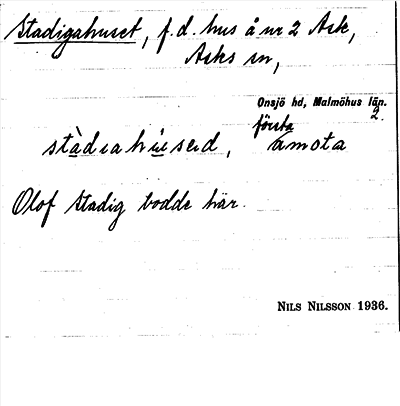 Stadigahuset, f.d. hus å nr 2 Ask,
Asks sn,
Onsjö hd, Malmöhus län.
2.
första
stàdıahúsəd, åmota
Olof Stadig bodde här.
NILS NILSSON 1936.